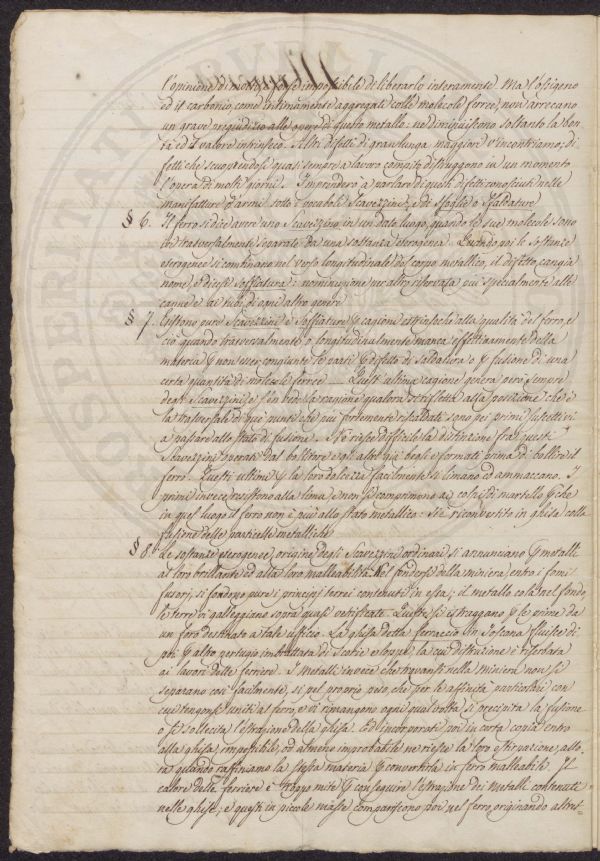 l'opinione di molti, forse impossibile di liberarlo interamente. Ma l'ossigeno
ed il carbonio, come intimamente aggregati colle molecole ferree, non arrecano
un grave pregiudizio alle opere di questo metallo: ne diminuiscono soltanto la bon
tà ed il valore intrinseco. Altri difetti di gran lunga maggiori v'incontriamo; di
fetti che scuoprendosi quasi sempre a lavoro compito distruggono in un momento
l'opera di molti giorni. Imprenderò a parlare di questi difetti conosciuti nelle
manifatture d'armi sotto i vocaboli Scavezzini, e di Sfoglie o Sfaldature
§ 6. Il ferro si dice avere uno Scavezzino in un dato luogo, quando le sue molecole sono
ivi trasversalmente separate da una sostanza eterogenea. Quando poi le sostanze
eterogenee si combinano nel verso longitudinale del corpo metallico, il difetto cangia
nome, e dicesi soffiatura: nominazione per altro riservata più specialmente alle
canne e ai tubi di ogni altro genere
§ 7. Esistono pure Scavezzini e Soffiature p cagione estrinseche alla qualità del ferro, e
ciò quando trasversalmente o longitudinalmente manca effettivamente della
materia p non esser congiunte le parti p difetto di saldatura o p fusione di una
certa quantità di molecole ferree. Quest'ultima cagione genera però sempre
degli Scavezzini, e se n'vede la ragione qualora si rifletta alla posizione che è
la trasversale di quei punti che più fortemente riscaldati sono pei primi suscettivi
a passare allo stato di fusione. Nè riesce difficile la distinzione fra questi
Scavezzini operati dal bollitore e gli altri già begli e formati prima di bollire il
ferro. Questi ultimi p la loro dolcezza facilmente si limano ed ammaccano. I
primi invece resistono alla lima e non si comprimono ai colpi di martello p che
in quel luogo il ferro non è più allo stato metallico: si è riconvertito in ghisa colla
fusione delle particelle metalliche
§ 8. Le sostanze eterogenee, origine degli Scavezzini ordinari si annunciano p metalli
al loro brillante ed alla loro malleabilità. Nel fondersi della miniera, entro i forni
fusori, si fondono pure i principj terrei contenuti in essa; il metallo cola nel fondo,
le terre vi galleggiano sopra quasi vetrificate. Queste si estraggono p le prime da
un foro destinato a tale ufficio. La ghisa detta ferraccio in Toscana fluisce di
poi p altro pertugio imbrattata di Scorie e loupe, la cui distruzione è riserbata
ai lavori delle ferriere. I metalli invece che trovansi nella miniera non si
separano così facilmente, sì pel proprio peso, che per le affinità particolari con
cui tengonsi uniti al ferro, e vi rimangono ogni qualvolta si precipita la fusione
o si sollecita l'estrazione della ghisa. Ed incorporati poi in certa copia entro
alla ghisa, impossibile, od almeno improbabile ne riesce la loro estirpazione, allo
ra quando raffiniamo la stessa materia p convertirla in ferro malleabile. Il
calore delle ferriere è troppo mite p conseguire l'estrazione dei metalli contenuti
nelle ghise; e questi in piccole masse compariscono poi nel ferro, originando altret=